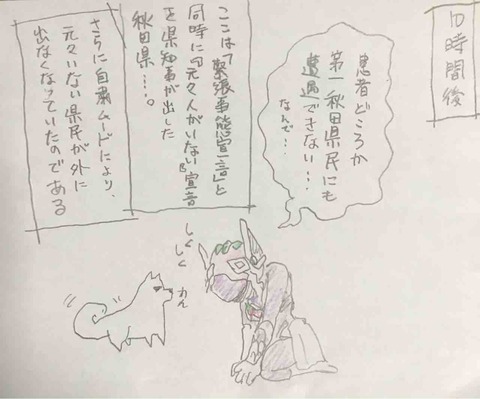 10時間後
患者どころか
第一秋田県民にも
遭遇できない…
なんで…
ここは「緊張事態宣言」と
同時に『元々人がいない』宣言
を県知事が出した
秋田県…。
さらに自粛ムードにより、
元々いない県民が外に
出なくなっていたのである
しく
しく
わん